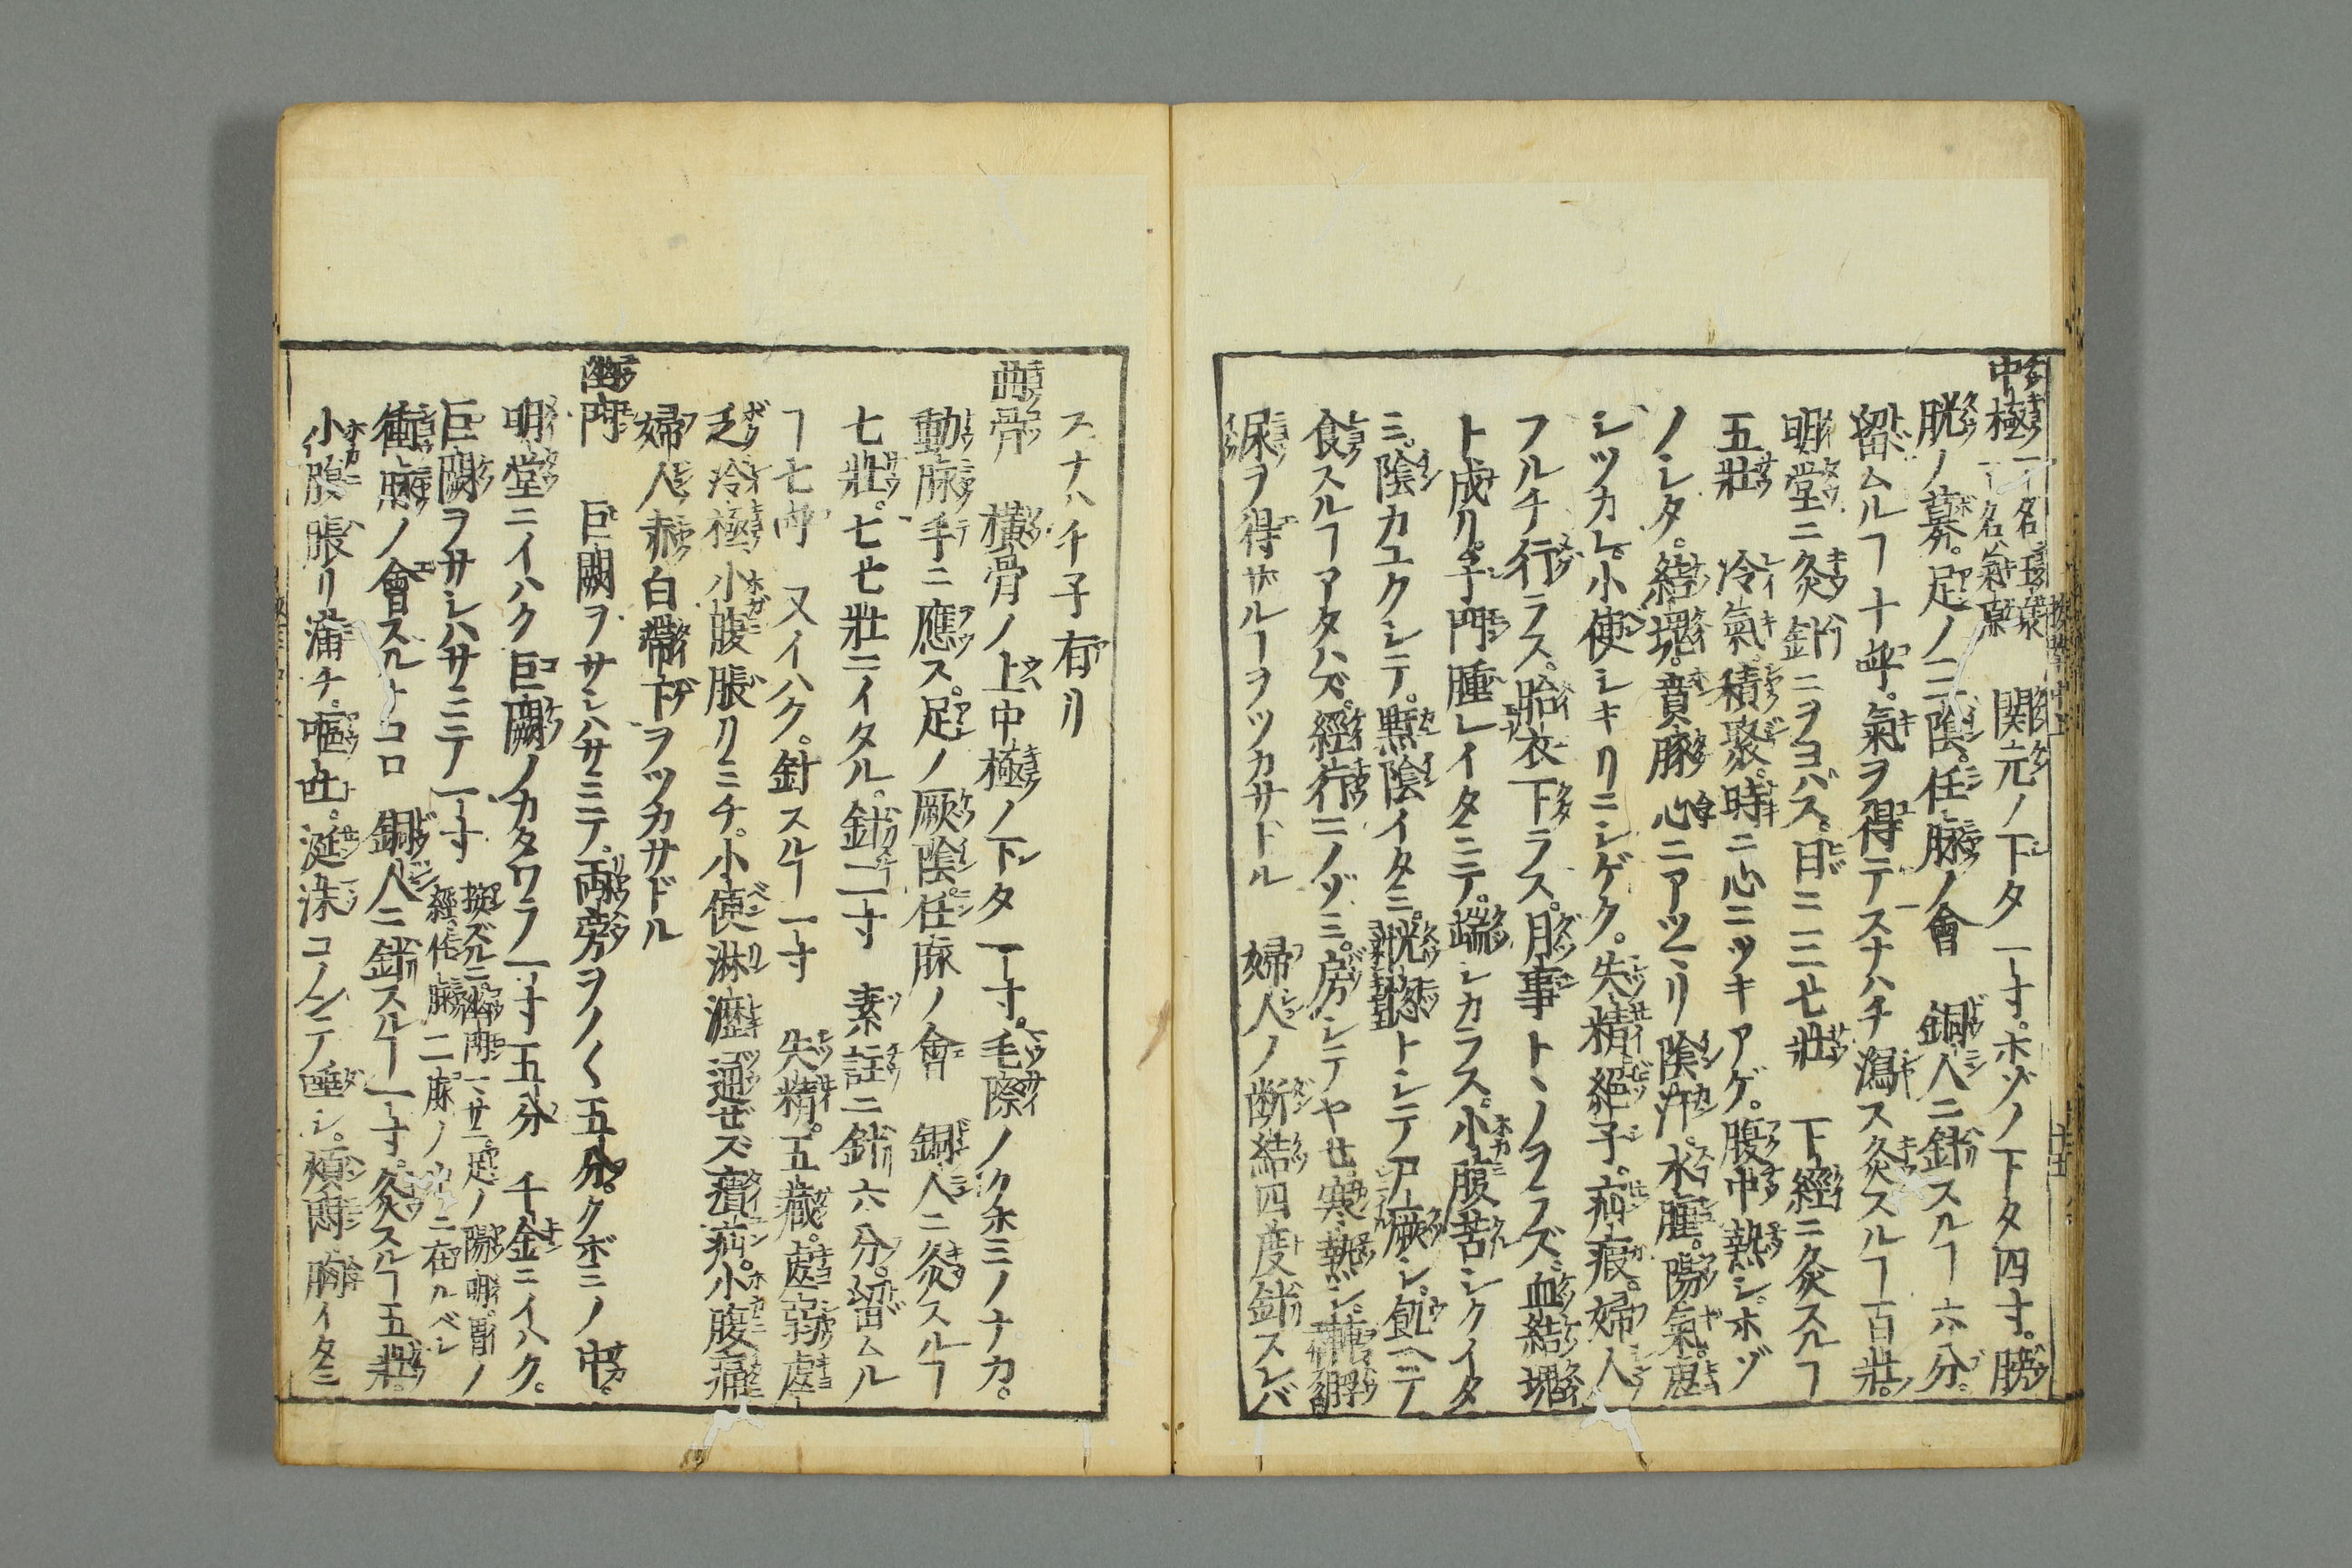 中極 一名玉泉 一名氣原 関元ノ下タ一寸。ホゾノ下タ四寸。膀
胱ノ募。足ノ三陰。任脉ノ會 銅人ニ針スルヿ六分。
留ムルヿ十呼。氣ヲ得テスナハチ瀉ス灸スルヿ百壯。
明堂ニ灸針ニヲヨバス。日ニ三七壯 下經ニ灸スルヿ
五壯 冷氣。積聚。時ニ心ニツキアゲ。腹中熱シ。ホゾ
ノシタ。結塊。賁豚 心ニアツマリ 陰汗。水腫。陽氣。虚
シツカレ。小使シキリニシゲク。失精絕子。疝瘕。婦人
フルチ行ラス。胎衣下ラス。月事トヽノヲラズ。血結塊
ト成リ。子門腫レイタミテ。端シカラス。小腹苦シクイタ
ミ。陰カユクシテ。熱陰イタミ。恍惚トシテ尸厥シ。飢ヘテ
食スルヿアタハズ。經行ニノゾミ。房シテヤセ寒熱シ。轉脬
尿ヲ得サルーヲツカサドル 婦人ノ断結四度針スレバ
スナハチ子有リ
曲骨 橫骨ノ上中極ノ下タ一寸。毛際ノクホミノナカ。
動脉手ニ應ス。足ノ厥陰。任脉ノ會 銅人ニ灸スルヿ
七壯。七七壯ニイタル。針二寸 素註ニ針六分。留ムル
ヿ七呼 又イハク。針スルヿ一寸 失精。五藏。虚弱虚
乏冷極。小腹脹リミチ。小便淋瀝通ゼズ㿉疝。小腹痛
婦人赤白帶下ヲツカサドル
幽門 巨闕ヲサシハサミテ。両旁ヲノ〱五分。クボミノ中。
明堂ニイハク巨闕ノカタワラ一寸五分 千金ニイハク。
巨闕ヲサシハサミテ一寸 按ズルニ幽門ハ サニ。足ノ陽明。胃ノ
經 任脉 二脉ノ中ニ在ルベシ
衝脉ノ會スルトコロ 銅人ニ針スルヿ一寸。灸スルヿ五壯。
小腹脹リ滿チ。嘔吐。涎沫コノンテ唾シ。煩悶胸イタミ